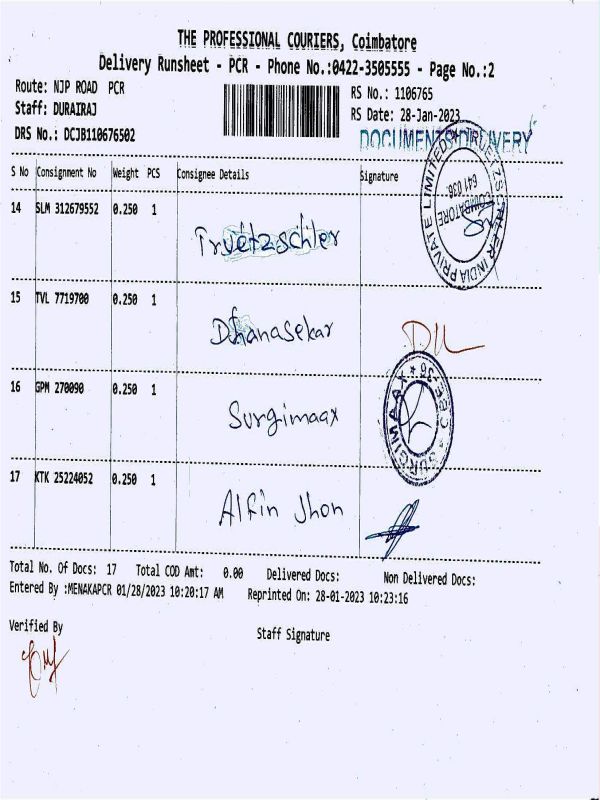 THE PROFESSIONAL COURIERS, Coimbatore
Delivery Runsheet - PCR - Phone No.:0422-3505555 - Page No.:2
Route: NJP ROAD PCR
RS No.: 1106765
Staff: DURAIRAJ
RS Date: 28-Jan-2023
DRS No.: DCJB110676502
DOCUMENTS DELIVERY
S No Consignment No Weight PCS Consignee Details Signature
14 SLM 312679552 0.250 1 Truetzschler
TRUETZSCHLER INDIA PRIVATE LIMITED
COIMBATORE
641 036.
15 TVL 7719700 0.250 1 Dhanasekar
16 GPM 270090 0.250 1 Surgimaax
SURGIMAAX
CBE-36
17 KTK 25224052 0.250 1 Alfin Jhon
Total No. Of Docs: 17 Total COD Amt: 0.00 Delivered Docs: Non Delivered Docs:
Entered By :MENAKAPCR 01/28/2023 10:20:17 AM Reprinted On: 28-01-2023 10:23:16
Verified By
Staff Signature